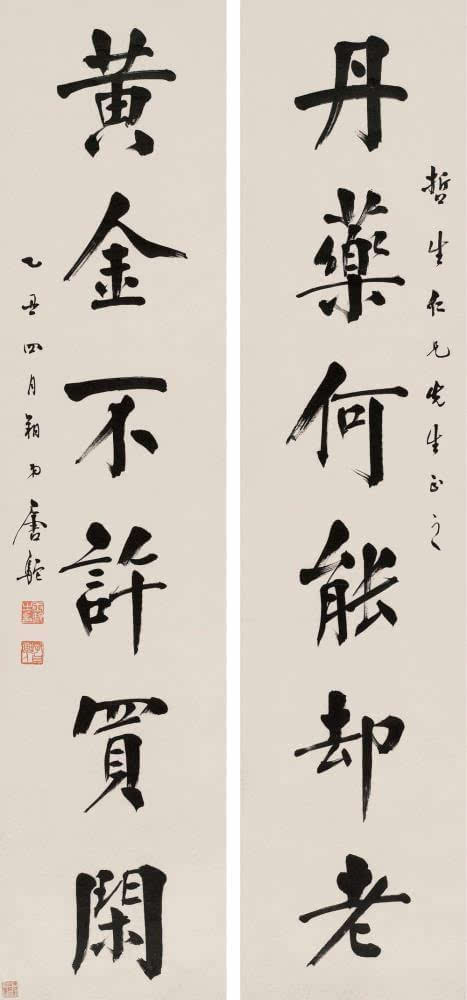 哲生仁兄先生正之
丹藥何能却老
黃金不許買閑
乙丑四月弟唐駝